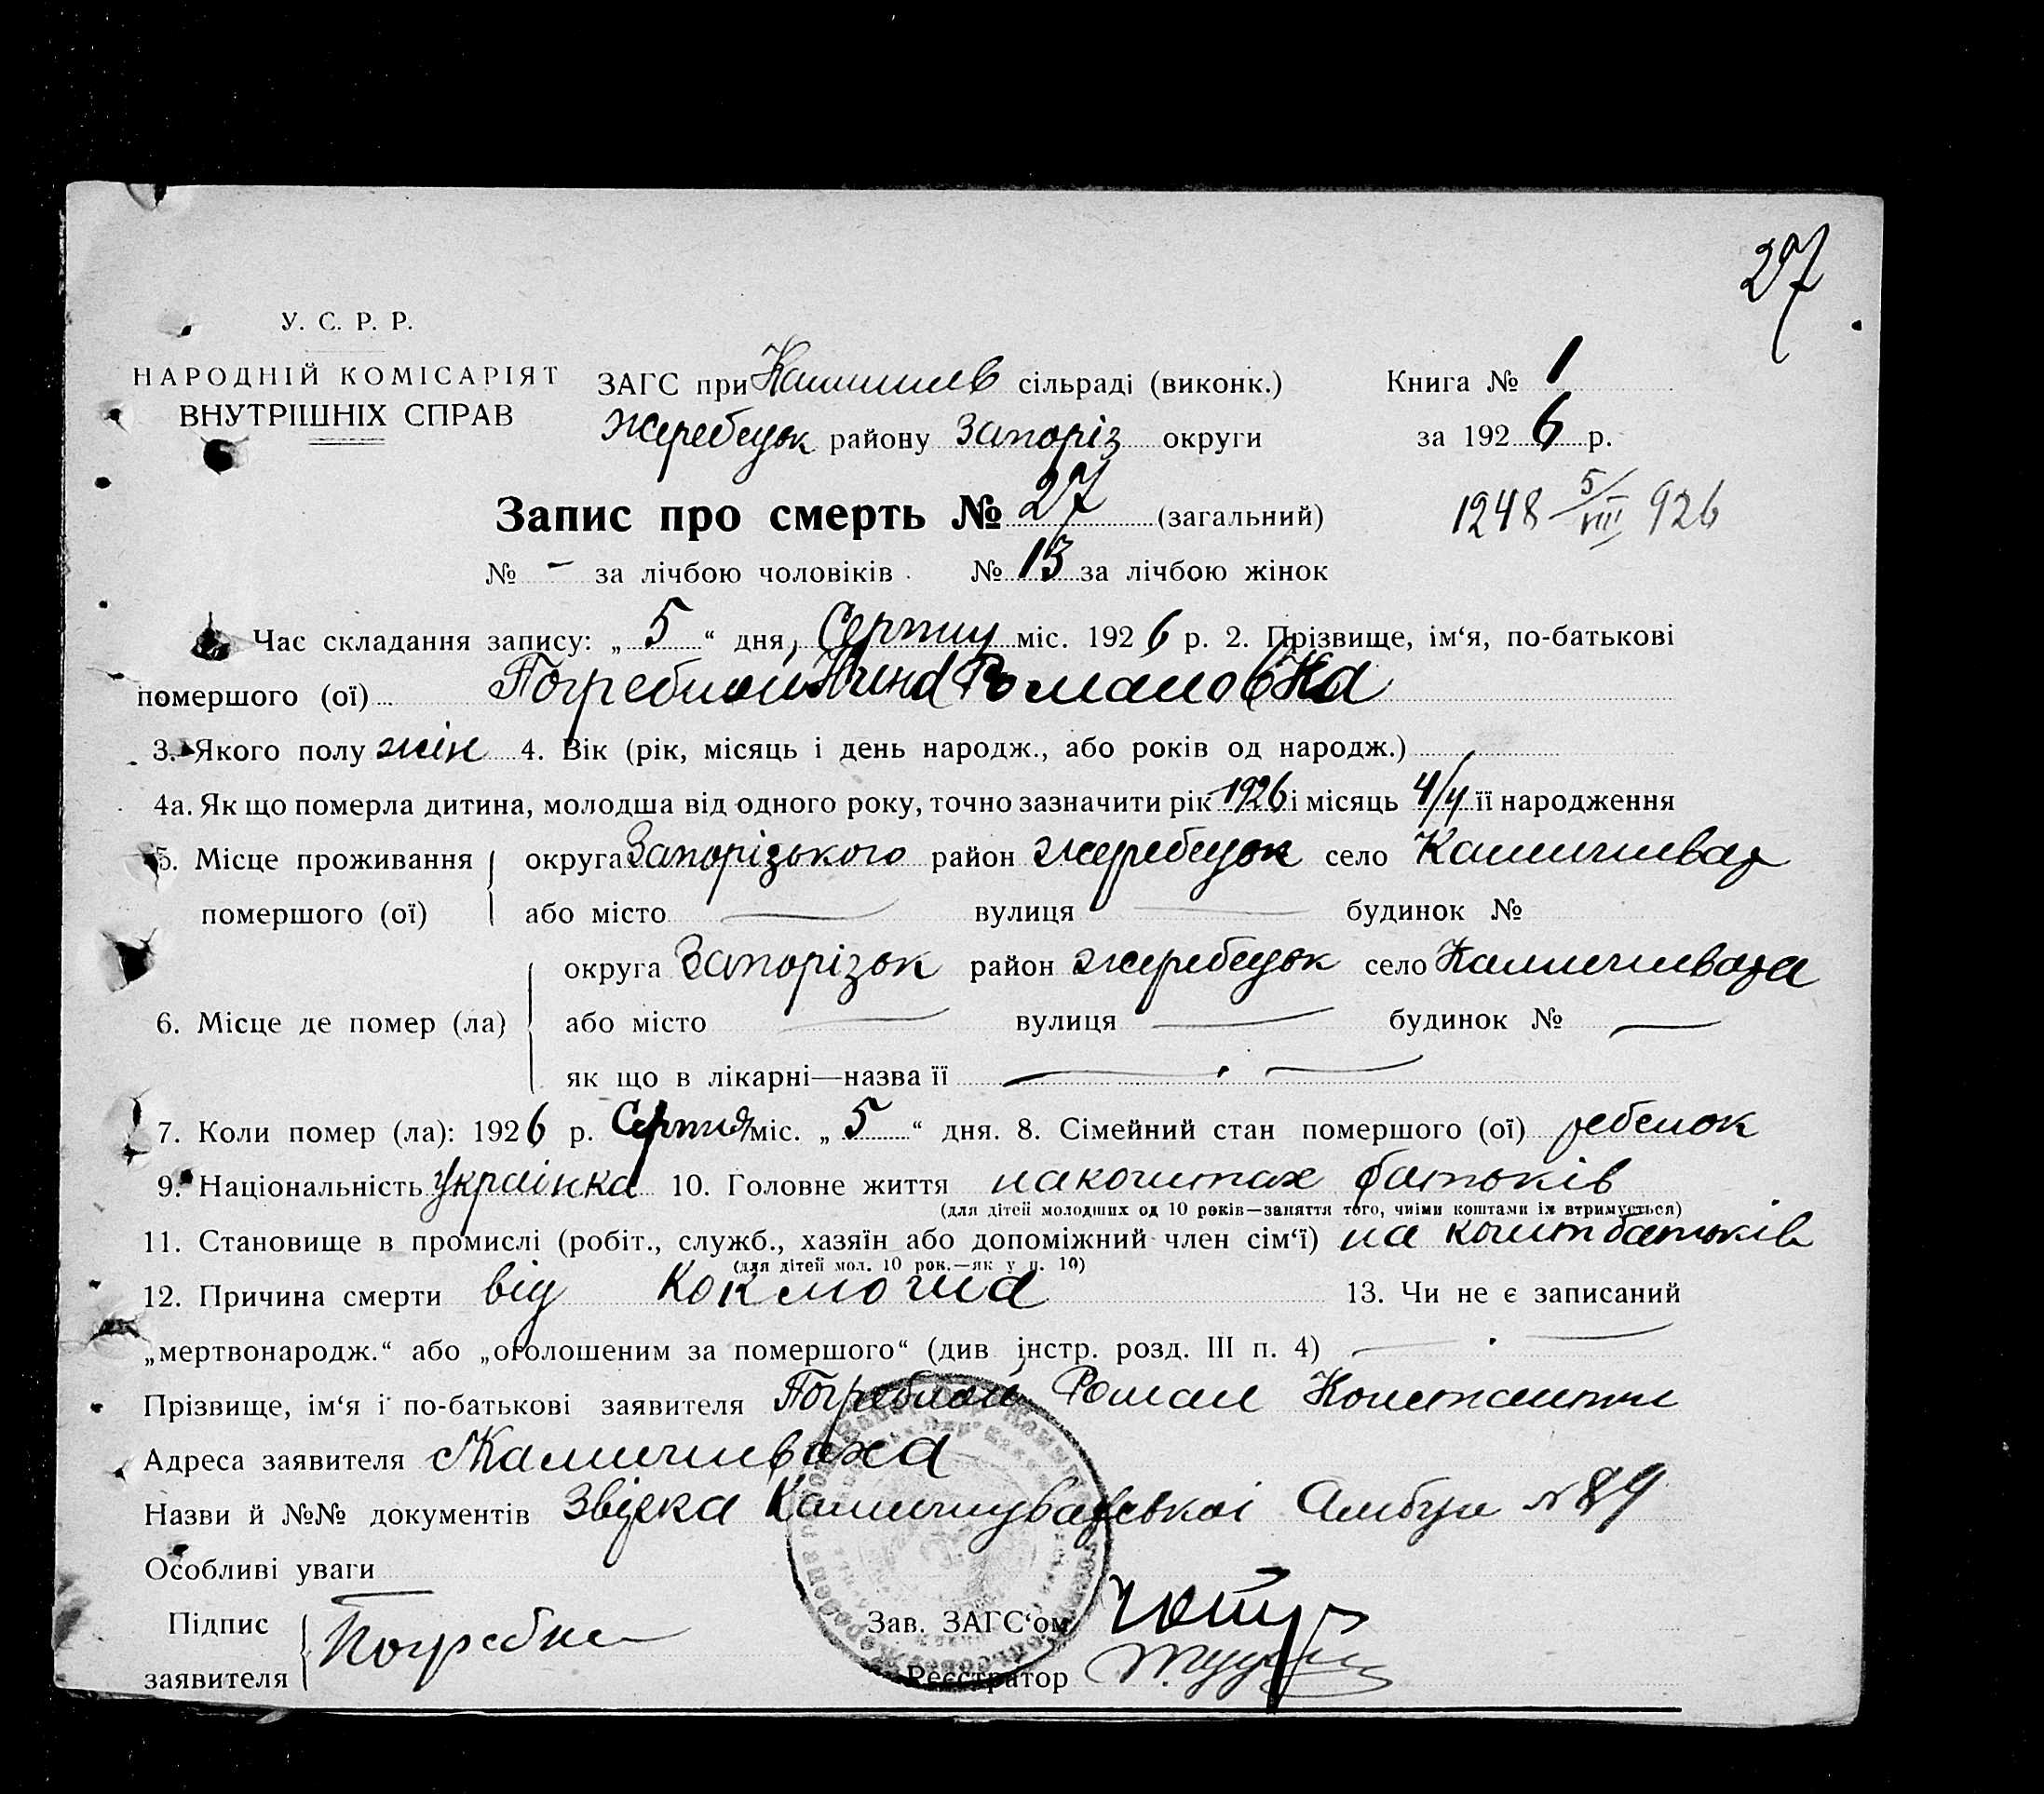 27
У. С. Р. Р.
НАРОДНІЙ КОМІСАРІЯТ
ВНУТРІШНІХ СПРАВ
ЗАГС при сільраді (виконк.)
Жеребецьк району Запоріз округи
Книга № 1
за 1926 р.
Запис про смерть № 27 (загальний)
1248 5/VIII 926
№ - за лічбою чоловіків № 13 за лічбою жінок
Час складання запису: „ 5 “ дня, Серпня міс. 1926 р. 2. Прізвище, ім‘я, по-батькові
помершого (ої) Погребной Нина Романовна
3. Якого полу жін 4. Вік (рік, місяць і день народж., або років од народж.)
4а. Як що померла дитина, молодша від одного року, точно зазначити рік 1926 і місяць її народження
5. Місце проживання округа Запорізького район Жеребецьк село
помершого (ої) або місто — вулиця — будинок №
округа Запорізьк район Жеребецьк село
6. Місце де помер (ла) або місто — вулиця — будинок № —
як що в лікарні—назва її — . —
7. Коли помер (ла): 1926 р. Серпня міс. „ 5 “ дня. 8. Сімейний стан помершого (ої) ребенок
9. Національність Українка 10. Головне життя на коштах батьків
(для дітей молодших од 10 років—заняття того, чиїми коштами їх втримується)
11. Становище в промислі (робіт., служб., хазяїн або допоміжний член сім‘ї) на кошт батьків
(для дітей мол. 10 рок.—як у п. 10)
12. Причина смерти від коклюша 13. Чи не є записаний
„мертвонародж.“ або „оголошеним за помершого“ (див інстр. розд. III п. 4) — . —
Прізвище, ім‘я і по-батькові заявителя Погребной Роман Константин
Адреса заявителя
Назви й №№ документів Звідка Амбул № 89
Особливі уваги
Підпис
заявителя Погребн
Зав. ЗАГС‘ом
Реєстратор